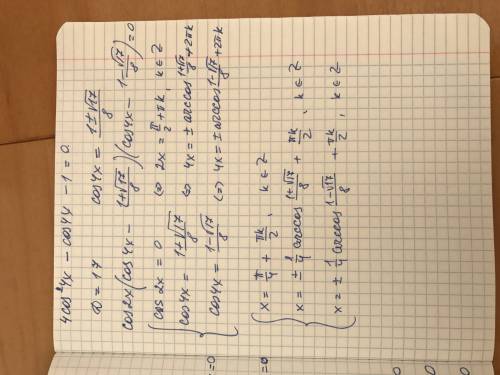 4cos²4x - cos4x - 1 = 0
D = 17     cos4x = (1±√17)/8
cos2x(cos4x - (1+√17)/8)(cos4x - (1-√17)/8) = 0
cos2x = 0 ⇔ 2x = π/2 + πk, k ∈ Z
cos4x = (1+√17)/8 ⇔ 4x = ± arccos (1+√17)/8 + 2πk
cos4x = (1-√17)/8 ⇔ 4x = ± arccos (1-√17)/8 + 2πk
x = π/4 + πk/2, k ∈ Z
x = ± 1/4 arccos (1+√17)/8 + πk/2, k ∈ Z
x = ± 1/4 arccos (1-√17)/8 + πk/2, k ∈ Z
=0
=0
0
0
0